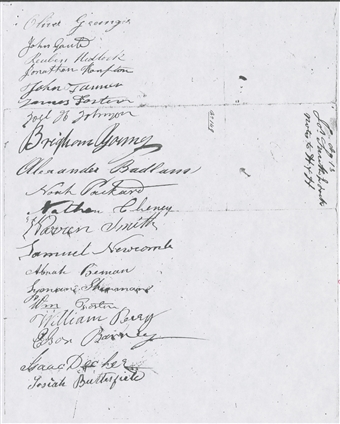 Oliver Granger
John Gould
Reuben Hedlock
Jonathan Hampton
John Tanner
James Foster
Joel H Johnson
Brigham Young
Alexander Badlam
Noah Packard
Nathan Cheney
Warren Smith
Samuel Newcomb
Abnah Beman
Wm
William Perry
Edson Barney
Isaac Decker
Josiah Butterfield